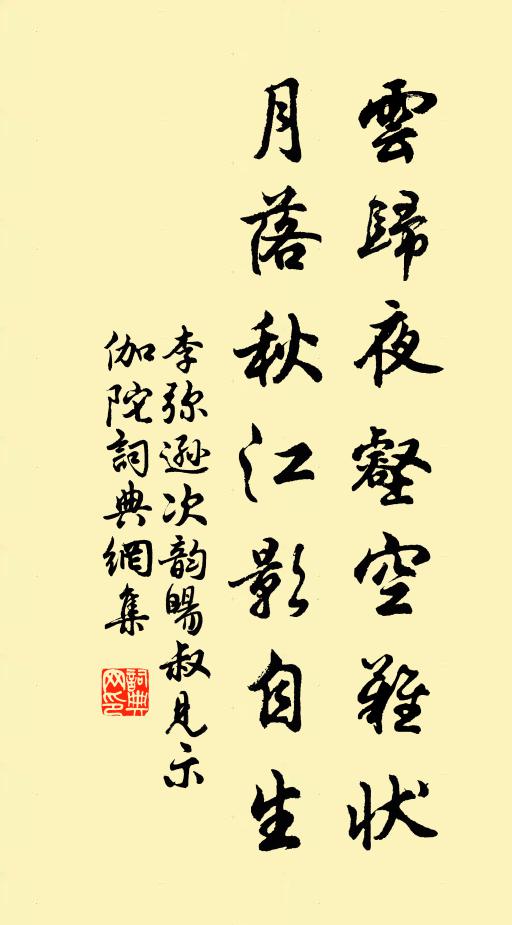 雲歸夜壑空難狀
月落秋江影自生
李弥遜次韵暘叔見示
伽陀詞典網集
詞典网印